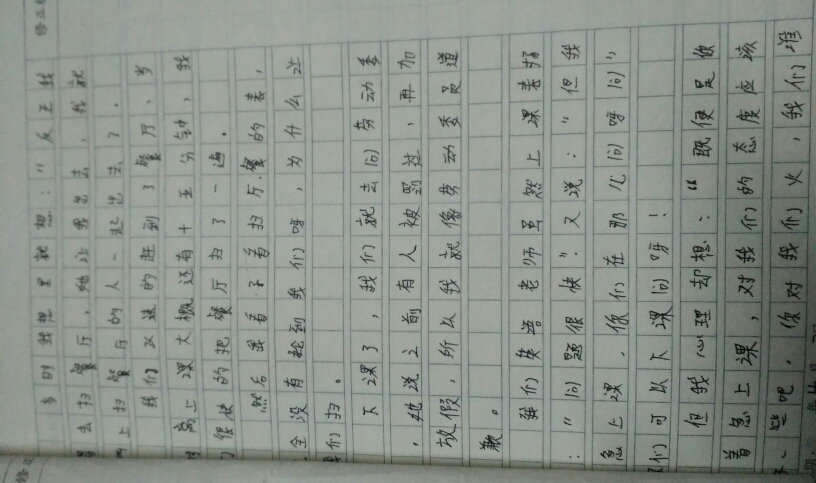 时我想里就想：“反正我
去扫餐厅，她让我出去，我就
上扫餐厅的人一起出去了。
我们以速的赶到了餐厅，当
时离上课大概还有十五分钟，我
们很快的把餐厅扫了一遍。
然后我看了看扫厅餐的表，
全没有轮到我们呀，为什么让
我们扫。
下课了，我们就去问劳动委
，她说之前有人被罚过，再加
放假，所以我就像劳动委员道
歉。
我们英语老师虽然上课表扬
：“问题很快”又说：“但我
急上课，你们在那儿问呀问”
们可以下课问呀！
但我心理却想：“既使是你
着急上课，对我们的态度应该
一些吧，你对我们火，我们难